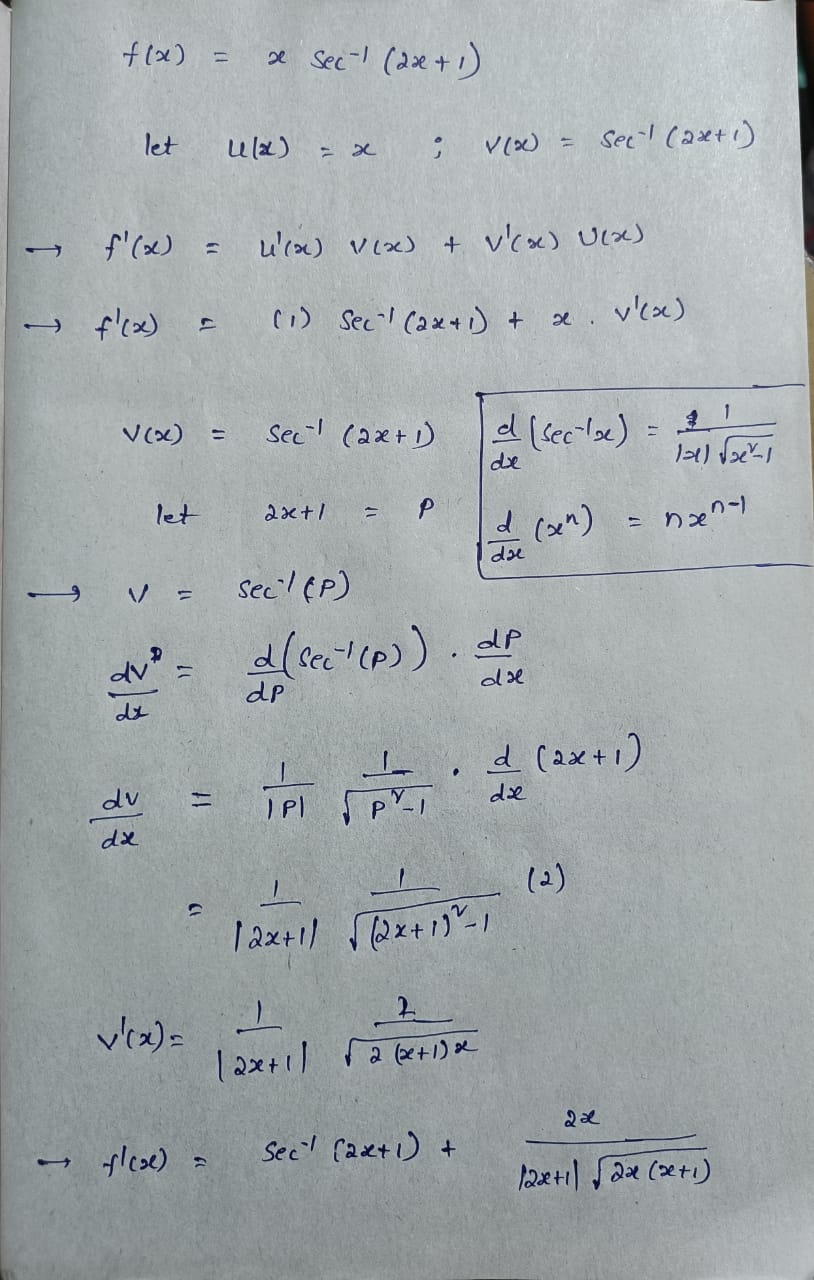 f(x) = x sec⁻¹ (2x+1)
let u(x) = x ; v(x) = sec⁻¹ (2x+1)
→ f'(x) = u'(x) v(x) + v'(x) u(x)
→ f'(x) = (1) sec⁻¹ (2x+1) + x . v'(x)
v(x) = sec⁻¹ (2x+1)
let 2x+1 = P
d/dx (sec⁻¹x) = 1/(|x| √(x²-1))
d/dx (xⁿ) = nxⁿ⁻¹
→ v = sec⁻¹ (P)
dv/dx = d/dP (sec⁻¹(P)) . dP/dx
dv/dx = 1/|P| 1/√(P²-1) . d/dx (2x+1)
= 1/|2x+1| 1/√((2x+1)²-1) (2)
v'(x) = 1/|2x+1| 2/√(2(x+1)x)
→ f'(x) = sec⁻¹ (2x+1) + 2x/(|2x+1| √(2x(x+1)))